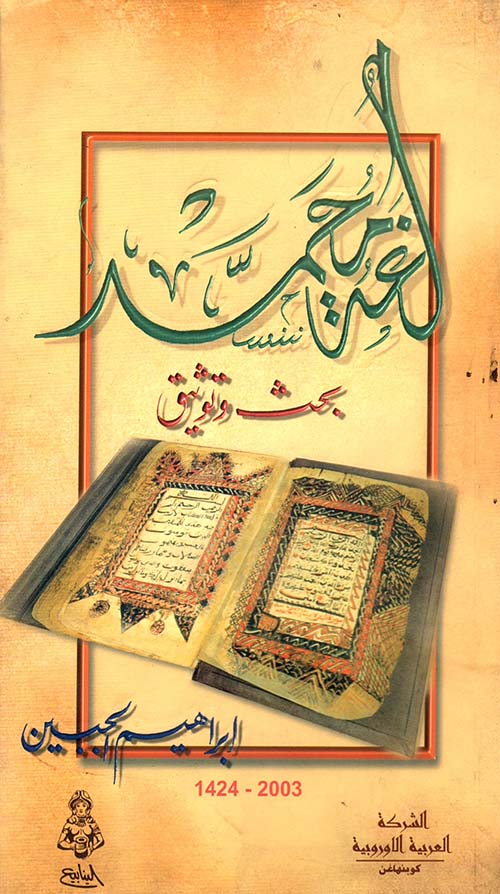 لغة محمد
بحث وتوثيق
ابراهيم الجبين
1424 - 2003
الشركة
العربية الاوروبية
كوبنهاغن
الينابيع